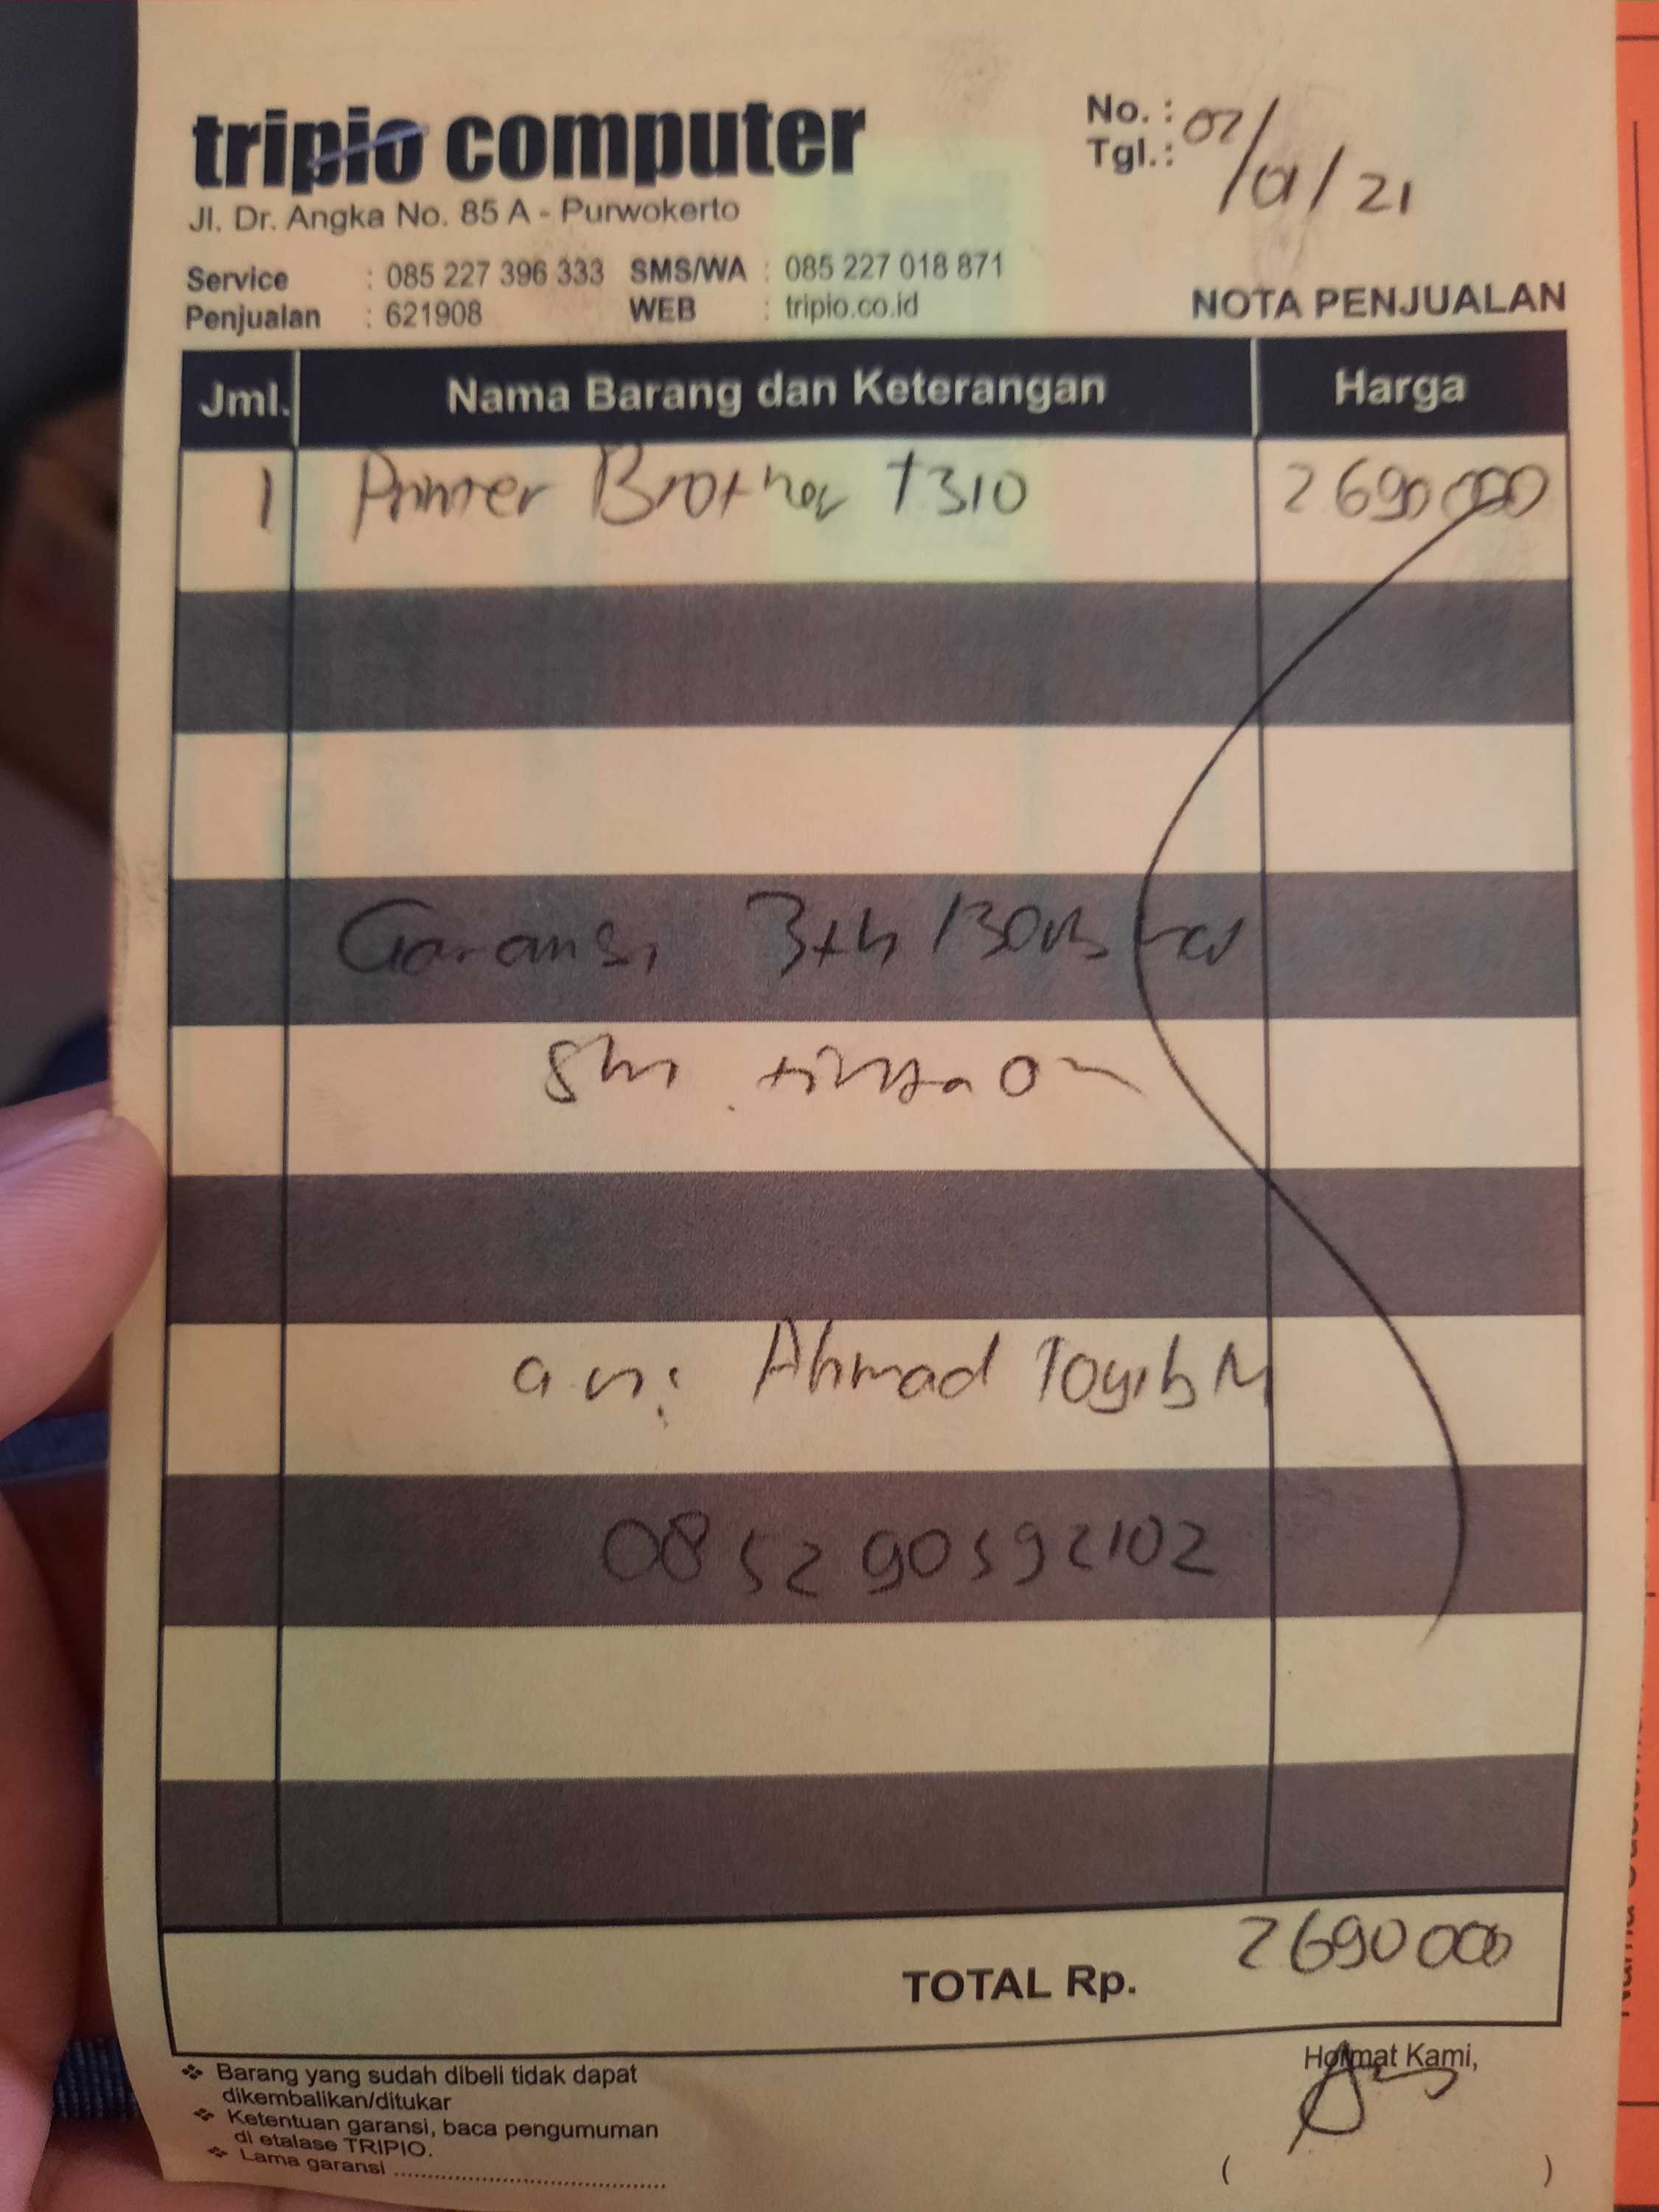 tripio computer
Jl. Dr. Angka No. 85 A - Purwokerto
Service : 085 227 396 333 SMS/WA : 085 227 018 871
Penjualan : 621908 WEB : tripio.co.id
No. :
Tgl.: 02/01/21
NOTA PENJUALAN
Jml. Nama Barang dan Keterangan Harga
1 Printer Brother T310 2690000
Garansi 3th
an: Ahmad Toyib M
085290592102
TOTAL Rp. 2690000
Hormat Kami,
( )
❖ Barang yang sudah dibeli tidak dapat
dikembalikan/ditukar
❖ Ketentuan garansi, baca pengumuman
di etalase TRIPIO.
❖ Lama garansi ........................................